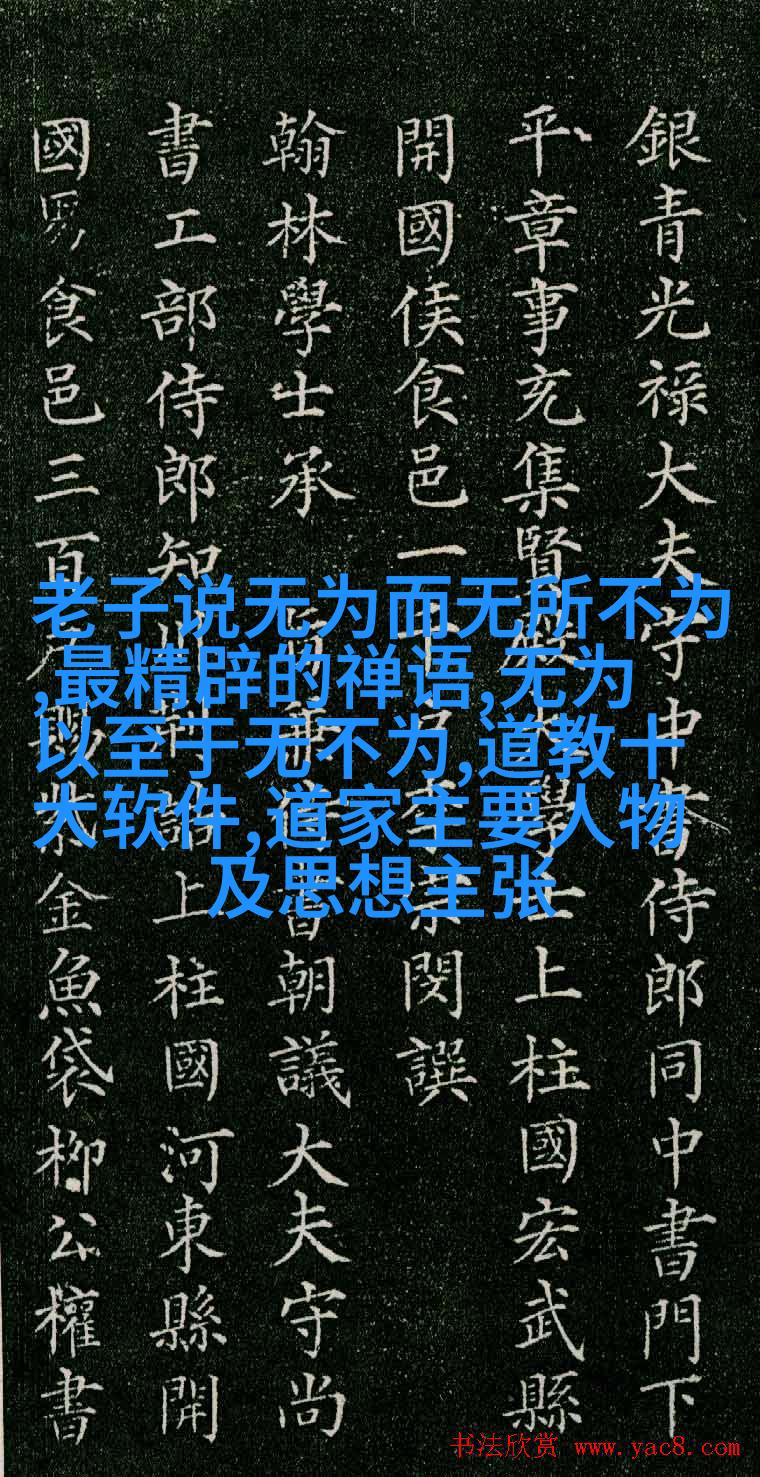 銀青光禄大夫守中書侍郎同中書門下
平章事充集賢殿大學士上柱國宏武縣
開國侯食邑一千李宗閔撰
翰林學士承旨兼侍書朝議大夫守尚
書工部侍郎知制誥上柱國河東縣開
國男食邑三百戶賜紫金魚袋柳公權書
老子说无为而无所不为
,最精辟的禅语,无为
以至于无不为,道教十
大软件,道家主要人物
及思想主张
书法欣赏 www.yac8.com